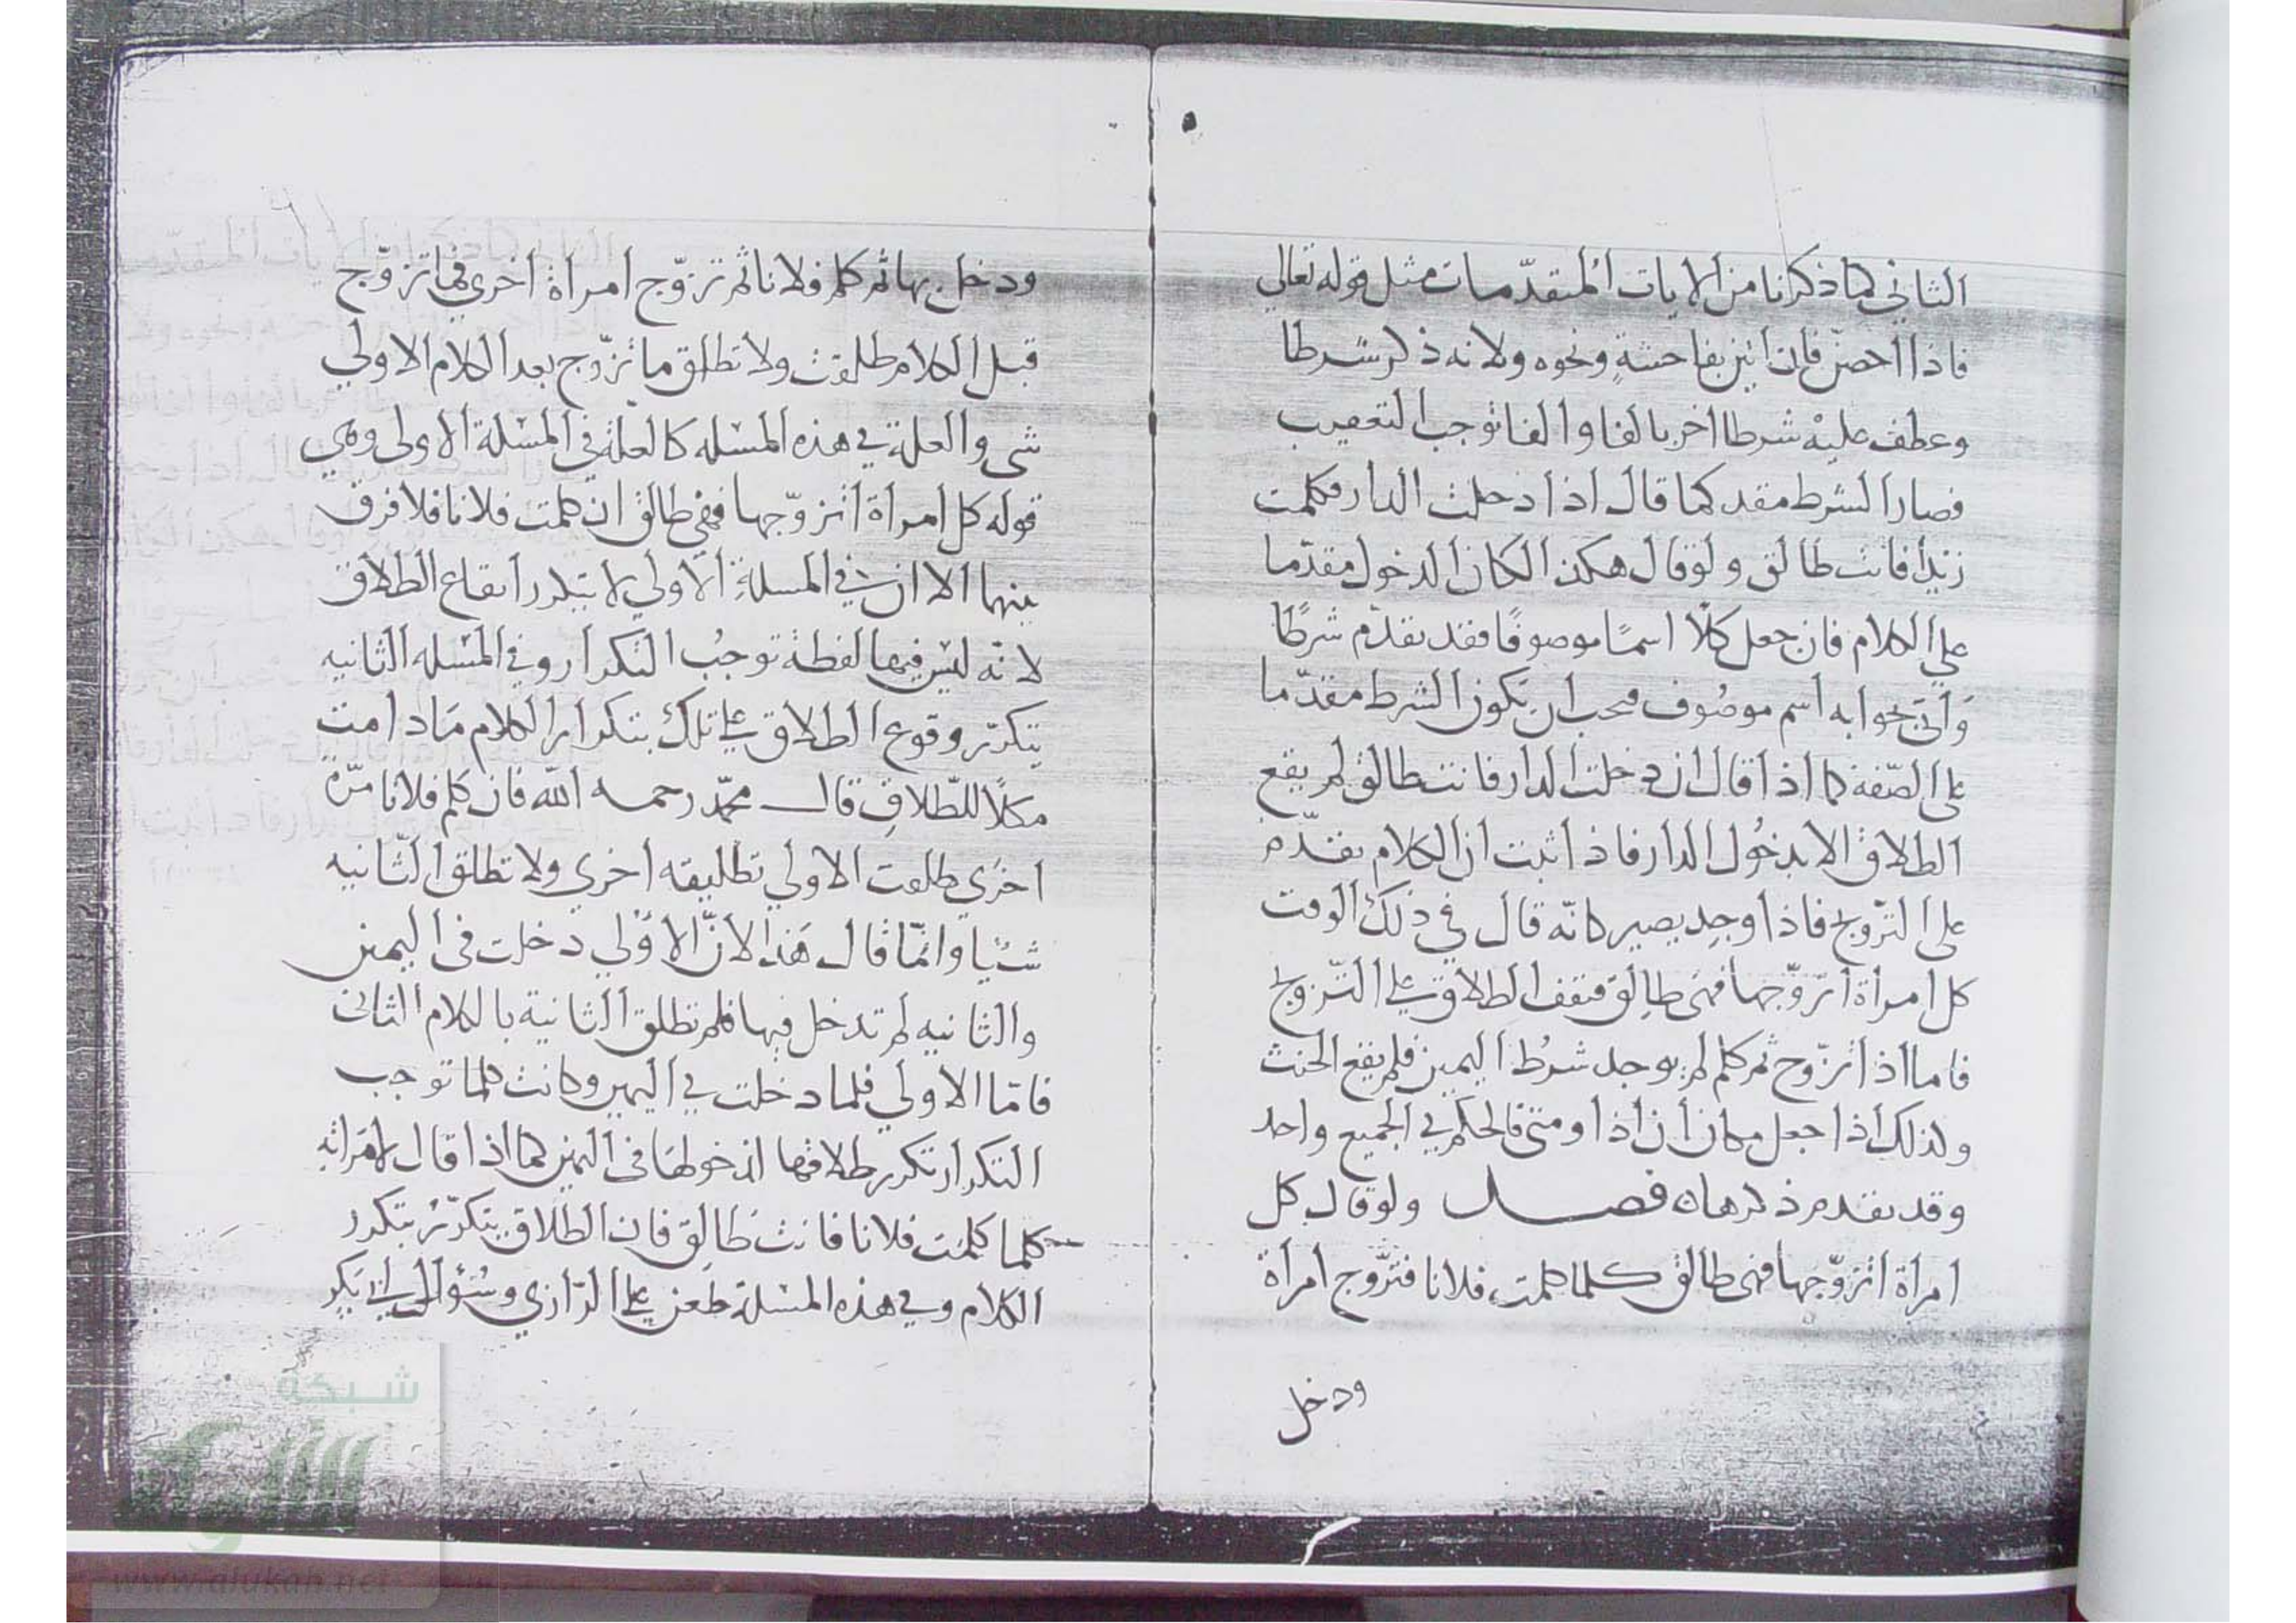 الثاني كما ذكرنا من الايات المتقدّمات مثل قوله تعالي
فاذا احصنّ فان اتين بفاحشةٍ ونحوه ولانه ذكر شرطا
وعطف عليه شرطا اخر بالفا والفا توجب التعقيب
فصار الشرط مقد كما قال اذا دخلت الدار فكلمت
زيدًا فانت طالق ولو قال هكذا لكان الدخول مقدّما
علي الكلام فان جعل كلّا اسمًا موصوفًا فقد تقدّم شرطًا
وَاتي بجوابه اسم موصُوف فيجب ان يكون الشرط مقدّما
علي الصّفة كما اذا قال ان دخلت الدار فانت طالق لم يقع
الطلاق الا بدخُول الدار فاذا ثبت ان الكلام تقدّم
علي التزّوج فاذا وجد يصير كانّه قال في ذلك الوقت
كل امراة اتزوّجها فهى طالق فتقف الطلاق علي التزّوج
فاما اذا تزوّج ثم كلم لم يوجد شرطُ اليمين فلم يقع الحنث
ولذلك اذا جعل مكان ان اذا ومتى فالحكم في الجميع واحد
وقد تقدم ذكرهاه فصل ولو قال كل
امراة اتزوّجها فهى طالق كلما كلمت فلانا فتزّوج امراة
ودخل
ودخل بها ثم كلم فلانا ثم تزوّج امراة اخري فما تزوّج
قبل الكلام طلقت ولا تطلق ما تزّوج بعد الكلام الاولي
شى والعلة في هذه المسئله كالعلة في المسئلة الاولى وهي
قوله كل امراة اتزوّجها فهي طالق ان كلمت فلانا فلا فرق
بينهما الا ان في المسئلةِ الاولي لا يتكرر ايقاع الطلاق
لانّه ليسَ فيها لفظة توجبُ التكرار وفي المسئله الثانيه
يتكرّر وقوع الطلاق علي تلك بتكرار الكلام مَا دامت
مكلًا للطّلاقِ قال محمّد رحمه الله فان كلم فلانا مرّة
اخرَى طلقت الاولي تطليقه اخري ولا تطلق الثّانيه
شيْيا وانمّا قال هَذا لانّ الاوْلي دخلت فى اليمين
والثانيه لم تدخل فيها فلم تطلق الثانية بالكلام الثانى
فامّا الاولي فلما دخلت في اليمين وكانت كلما توجب
التكرار تكرر طلاقها لدخولهَا فى اليمين كما اذا قال لامَراته
كلما كلمت فلانا فانت طَالِق فان الطلاق يتكرّرُ بتكرر
الكلام وفي هذه المسئلة طعن علي الرّازي وسُؤال
شبكة
الألوكة
www.alukah.net